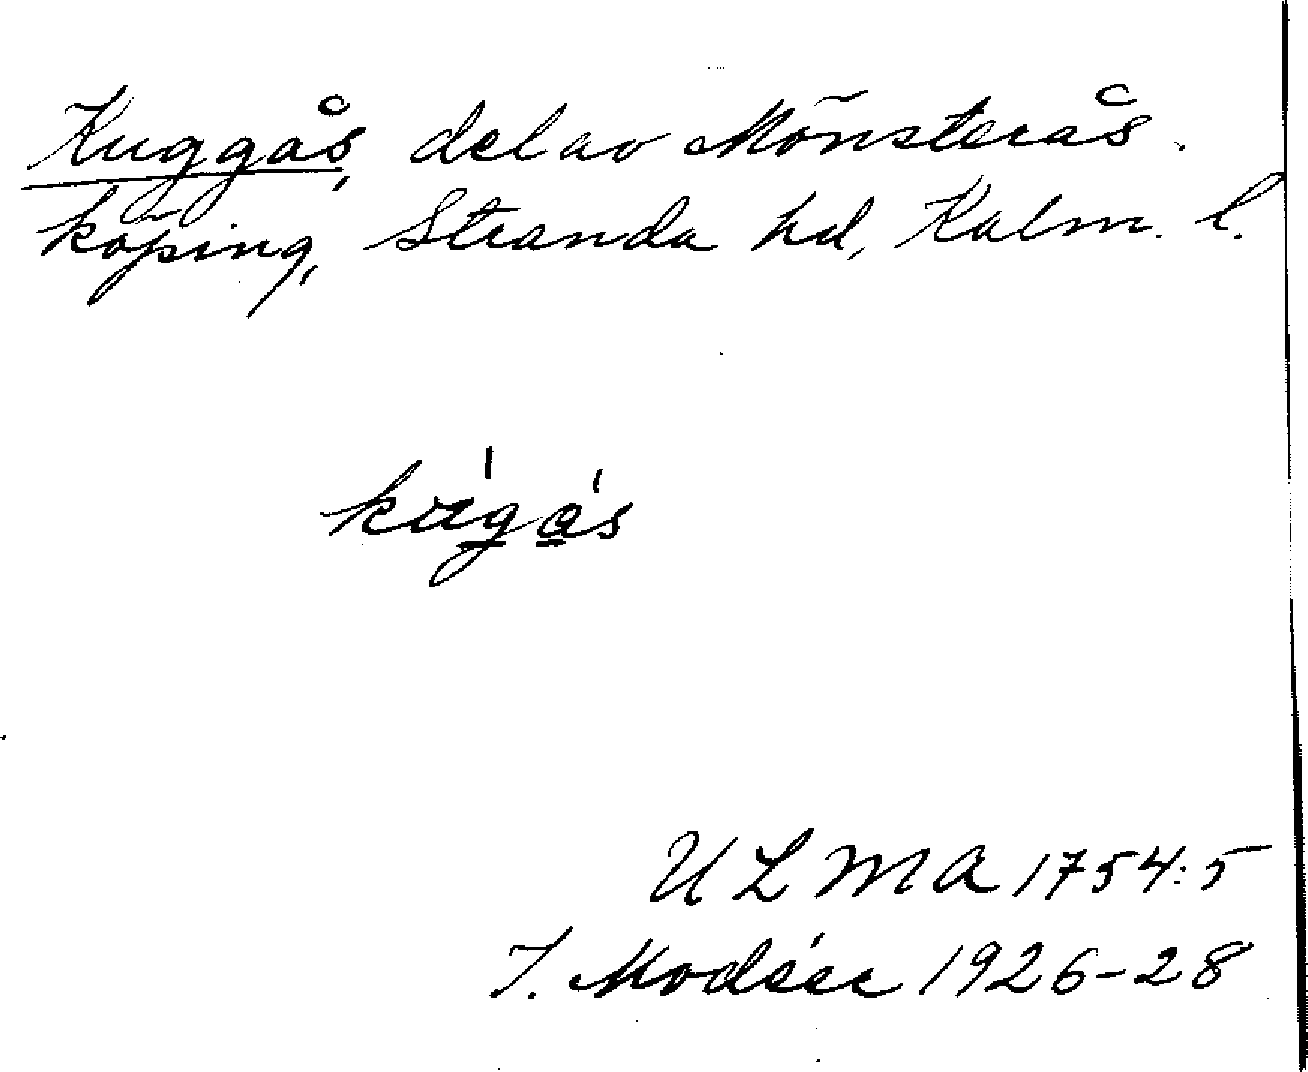 Kuggås, del av Mönsterås
köping, Stranda hd, Kalm. l.
kúgás
ULMA 1754:5
I. Modéer 1926-28